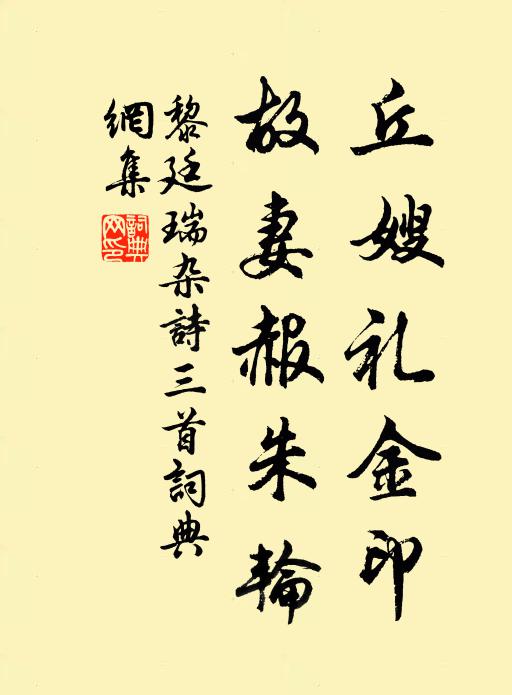 丘嫂礼金印
故妻赧朱輪
黎廷瑞杂詩三首詞典
網集
詞典網印